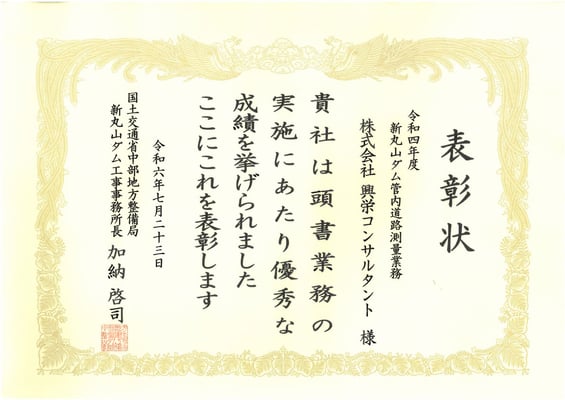 表彰状
令和四年度
新丸山ダム管内道路測量業務
株式会社 興栄コンサルタント 様
貴社は頭書業務の
実施にあたり優秀な
成績を挙げられました
ここにこれを表彰します
令和六年七月二十三日
国土交通省中部地方整備局
新丸山ダム工事事務所長 加納 啓司